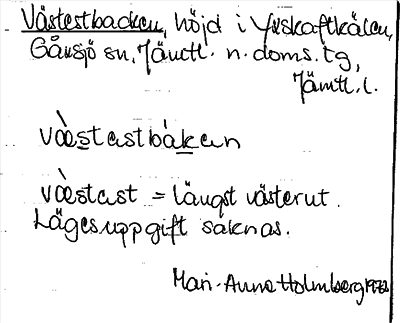 Västestbacken, höjd i Yxskaftkälen,
Gåxsjö sn, Jämtl. n. doms. tg,
Jämtl. l.
väestestbàkan
väestest = längst västerut.
Lägesuppgift saknas.
Mari-Anne Holmberg 1972